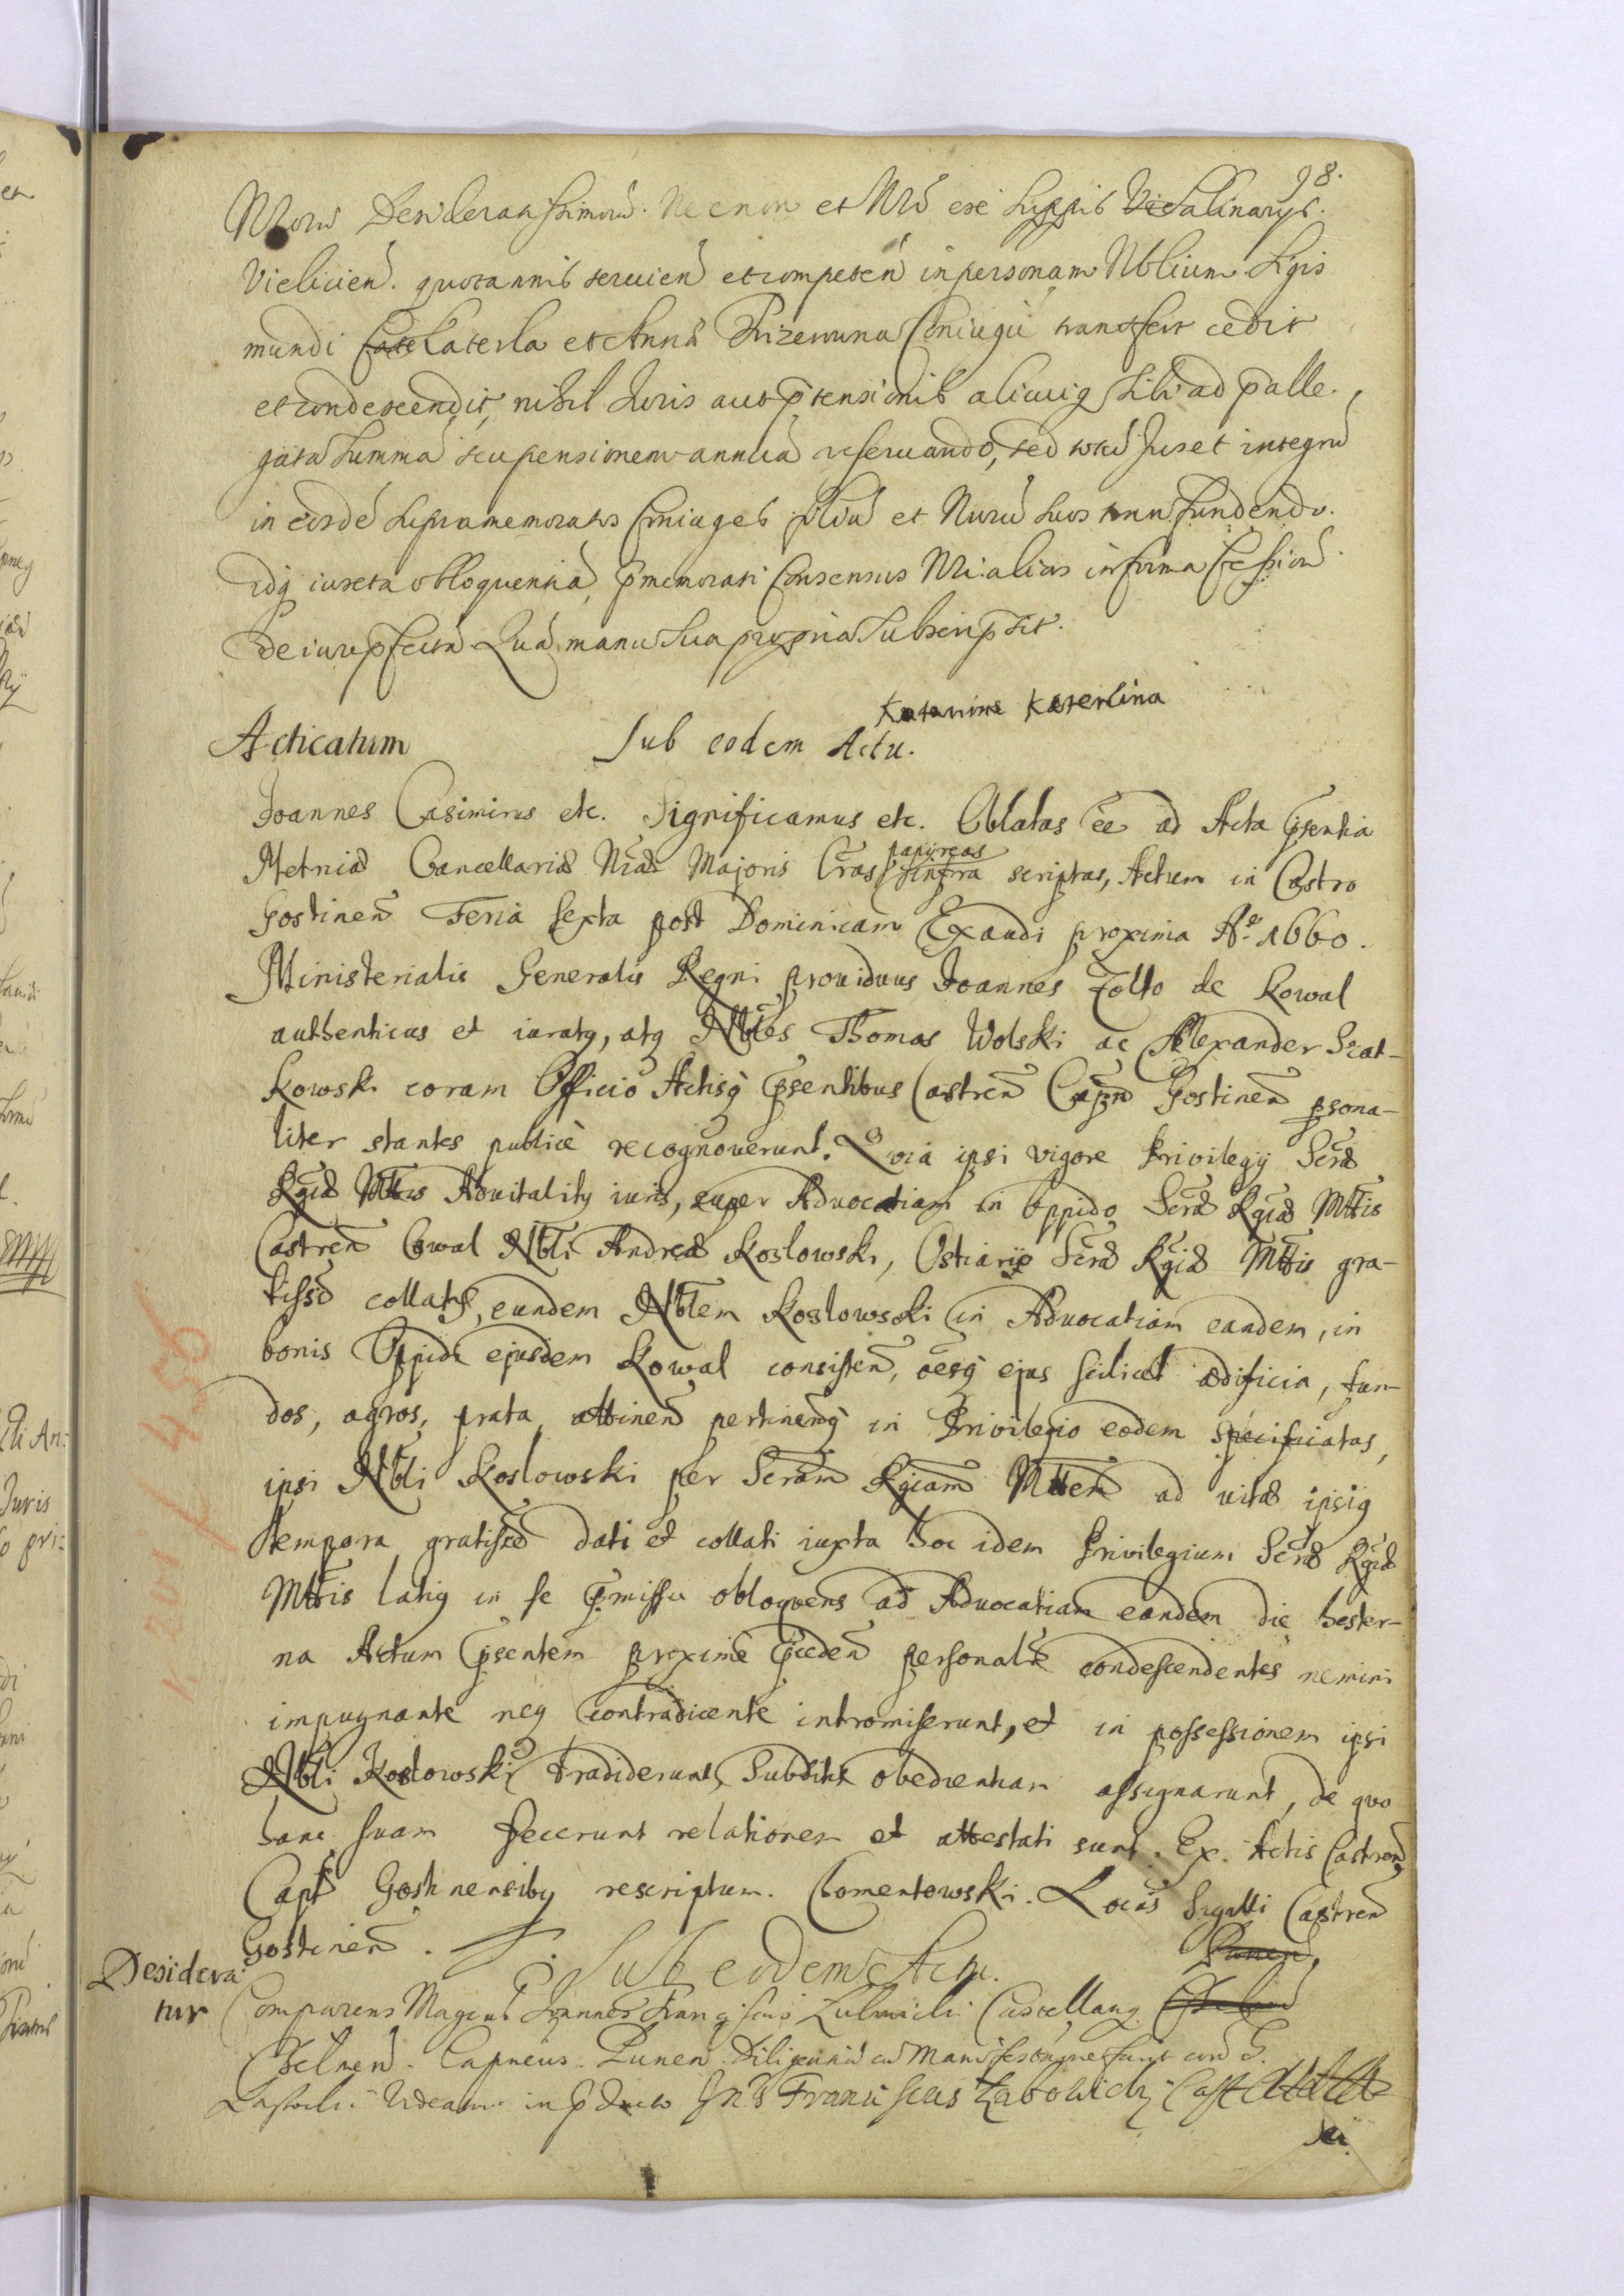 98.
Nrorũ Desideratissimorũ. Necnon et Nrũ exe Suppis Vicsalinarys.
Vielicien. quotannis seruien et competen in personam Nblium Sigis
mundi Katerla et Annæ Coniugũ transfert cedit
et condescendit, nihil Juris aut ptensionis alicuiq sibi ad p̃alle
gatã Summã seu pensionem annuã reseruando, sed totũ Jus et integrũ
in eosdẽ supramemoratos Coniuges filiũ et Nurũ suos transfundendo.
idq iuxta obloquentiã p̃memorati Consensus Nri alias in forma Cession
de iure pfectã Quã manu sua propria subscripsit.
Katarina Katerlina
Acticatum Sub eodem Actu.
Joannes Casimirus etc. Significamus etc. Oblatas eẽ ad Acta p̃sentia
Metricæ Cancellariæ Nræ Majoris Lr̃as papijreas infra scriptas, Actum in Castro
Gostinen Feria sexta post Dominicam Exaudi proxima Aº 1660.
Ministerialis Generalis Regni prouidus Joannes Zolto de Kowal
authenticus et iuratq, atq Nbles Thomas Wolski ac Alexander Szat-
kowski coram Officio Actisq p̃sentibus Castren Capn Gostinen psona-
liter stantes publicè recognouerunt. Quia ipsi vigore Priuilegij Sræ
Rgiæ Mttis Aduitalitq iuris, super Aduocatiam in Oppido Sræ Rgiæ Mttis
Castren Cowal Nbli Andreæ Koslowski, Ostiario Sræ Rgiæ Mttis gra-
tissẽ collatq, eundem Nblem Koslowski in Aduocatiam eandem, in
bonis Oppidi ejusdem Kowal consisten, oẽsq ejus scilicet ædificia, fun-
dos, agros, prata, attinen pertinenq in Priuilegio eodem specificatas,
ipsi Nbli Koslowski per Sram Rgiam Mttem ad vitæ ipsiq
tempora gratissẽ dati et collati iuxta hoc idem Priuilegium Sræ Rgiæ
Mttis latiq in se p̃missu obloquens ad Aduocatiam eandem die hester-
na Actum p̃sentem proximè p̃ceden personalr condescendentes nemini
impugnante neq contradicente intromiserunt, et in possessionem ipsi
Nbli Koslowski tradiderunt, Subditis obedientiam assignarunt, de quo
hanc suam fecerunt relationem et attestati sunt. Ex Actis Castren
Capt Gostinensibq rescriptum. Chomentowski. Locus Sigilli Castren
Gostinen.
Sub eodem Actu.
Desidera
tur
Comparens Magcus Joannes Franciscus Lubowicki Castellanq
Chelmen. Capneus. Punen. Diligentiã cũ Manifestatione fecit corã
Franciscus Lubowicki Cast